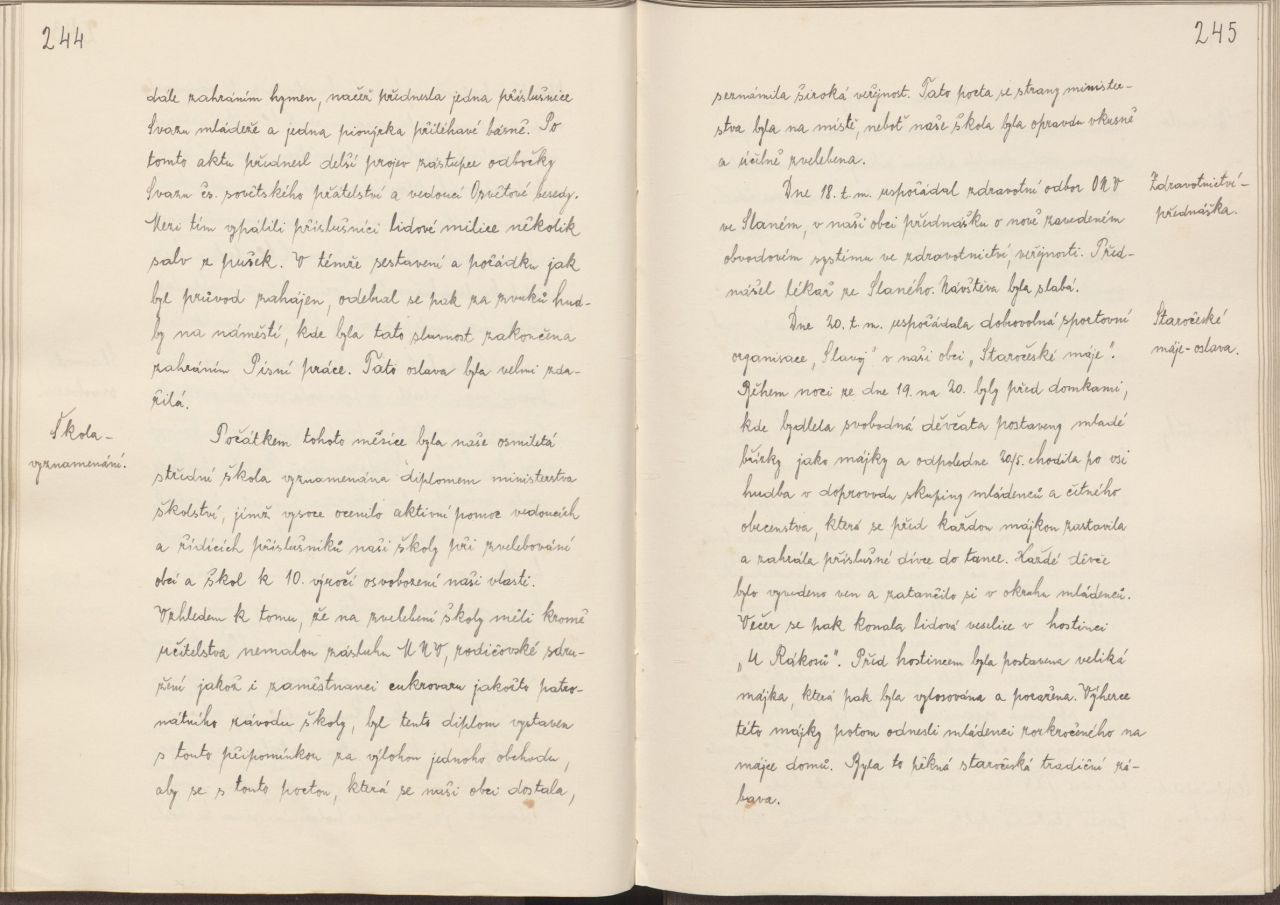 244
dále zahráním hymen, načež přednesla jedna příslušnice
Svazu mládeže a jedna pionýrka přiléhavé básně. Po
tomto aktu přednesl delší projev zástupce odbočky
Svazu čs. sovětského přátelství a vedoucí Osvětové besedy.
Mezi tím vypálili příslušníci lidové milice několik
salv z pušek. V témže sestavení a pořádku jak
byl průvod zahájen, odebral se pak za zvuků hud-
by na náměstí, kde byla tato slavnost zakončena
zahráním Písní práce. Tato oslava byla velmi zda-
řilá.
Škola-
vyznamenání.
Počátkem tohoto měsíce byla naše osmiletá
střední škola vyznamenána diplomem ministerstva
školství, jímž vysoce ocenilo aktivní pomoc vedoucích
a řídících příslušníků naší školy při zvelebování
obcí a škol k 10. výročí osvobození naší vlasti.
Vzhledem k tomu, že na zvelebení školy měli kromě
učitelstva nemalou zásluhu MNV, rodičovské sdru-
žení jakož i zaměstnanci cukrovaru jakožto patro-
nátního závodu školy, byl tento diplom vystaven
s touto připomínkou za výlohou jednoho obchodu,
aby se s touto poctou, která se naší obci dostala,
245
seznámila široká veřejnost. Tato pocta se strany minister-
stva byla na místě, neboť naše škola byla opravdu vkusně
a účilně zvelebena.
Zdravotnictví-
přednáška.
Dne 18. t. m. uspořádal zdravotní odbor ONV
ve Slaném, v naší obci přednášku o nově zavedeném
obvodovém systému ve zdravotnictví, veřejnosti. Před-
nášel lékař ze Slaného. Návštěva byla slabá.
Staročeské
máje-oslava.
Dne 20. t. m. uspořádala dobrovolná sportovní
organisace „Slavoj" v naší obci „Staročeské máje".
Během noci ze dne 19. na 20. byly před domkami,
kde bydlela svobodná děvčata postaveny mladé
břízky jako májky a odpoledne 20/5. chodila po vsi
hudba v doprovodu skupiny mládenců a čítného
obecenstva, která se před každou májkou zastavila
a zahrála příslušné dívce do tance. Každé děvče
bylo vyvedeno ven a zatančilo si v okruhu mládenců.
Večer se pak konala lidová veselice v hostinci
„U Rákosů". Před hostincem byla postavena veliká
májka, která pak byla vylosována a poražena. Výherce
této májky potom odnesli mládenci rozkročeného na
májce domů. Byla to pěkná staročeská tradiční zá-
bava.